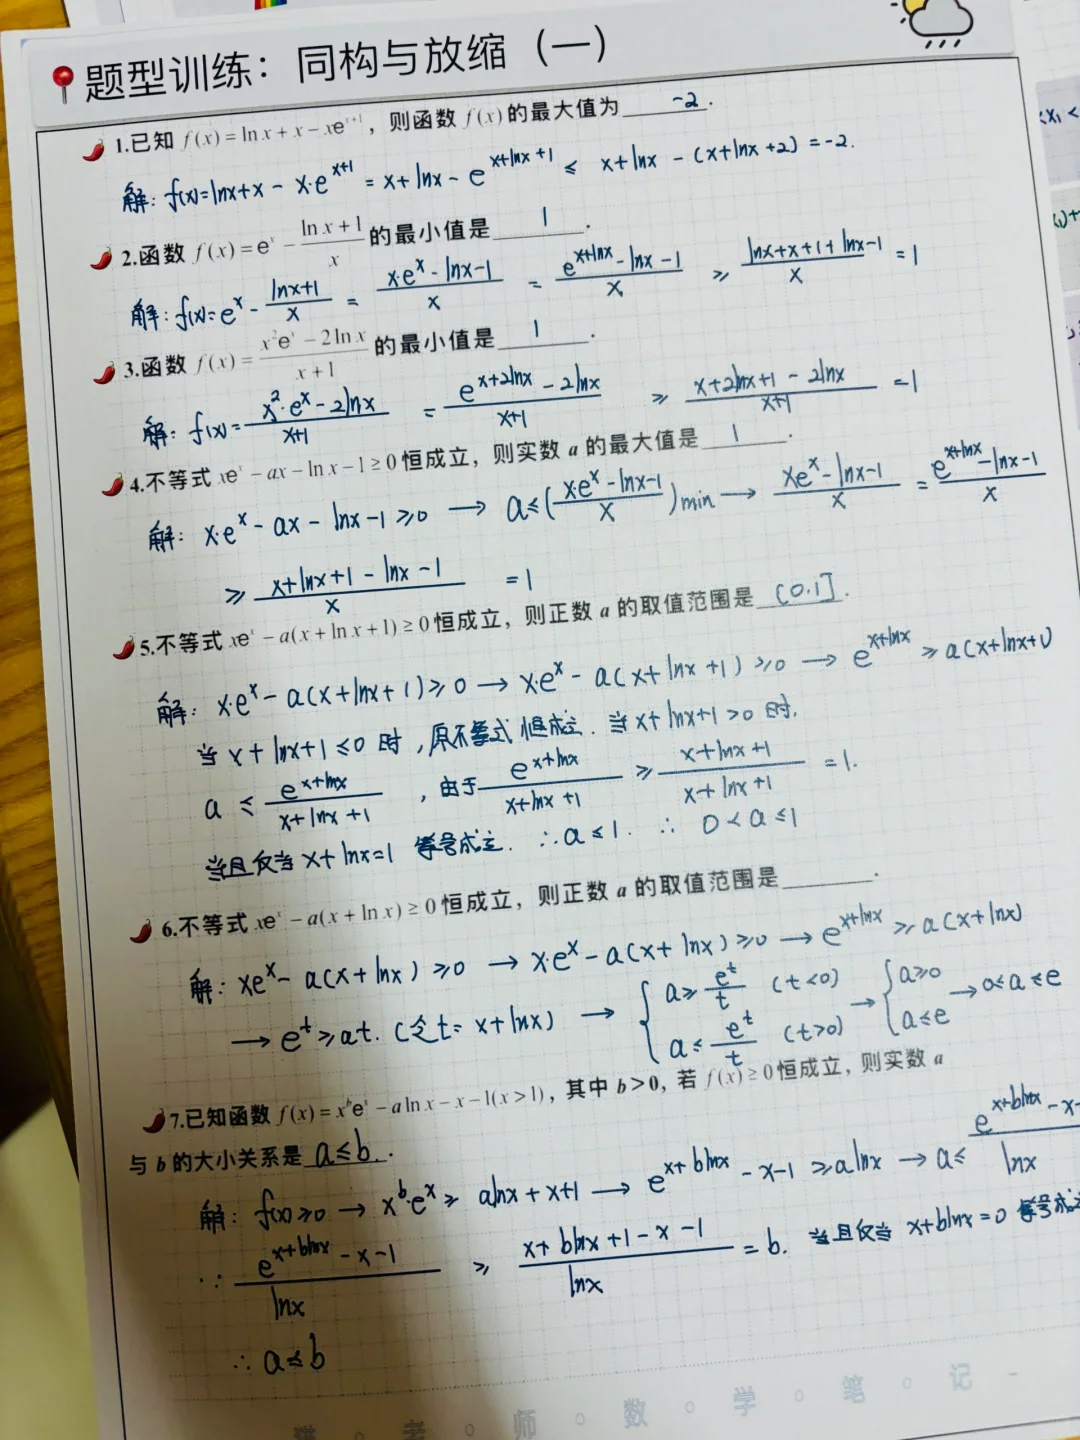 题型训练：同构与放缩（一）
1.已知 f(x)=ln x+x−xe^{x+1}，则函数 f(x)的最大值为 -2 .
解：f(x)=lnx+x − x·e^{x+1} = x+lnx − e^{x+lnx+1} ≤ x+lnx − (x+lnx+2) = −2.
2.函数 f(x)=e^x − (ln x+1)/x 的最小值是 1 .
解：f(x)=e^x − (lnx+1)/x = (x·e^x − lnx−1)/x = (e^{x+lnx} − lnx −1)/x ≥ (lnx+x+1+lnx−1)/x = 1
3.函数 f(x)= (x²e^x −2ln x)/(x+1) 的最小值是 1 .
解：f(x)= (x²·e^x − 2lnx)/(x+1) = (e^{x+2lnx} − 2lnx)/(x+1) ≥ (x+2lnx+1 − 2lnx)/(x+1) =1
4.不等式 xe^x − ax − ln x − 1 ≥ 0 恒成立，则实数 a 的最大值是 1 .
解：x·e^x − ax − lnx −1 ≥0 → a≤( (x·e^x − lnx−1)/x )min → (xe^x − lnx−1)/x = (e^{x+lnx} − lnx−1)/x
≥ (x+lnx+1 − lnx −1)/x =1
5.不等式 xe^x − a(x+ln x+1) ≥ 0 恒成立，则正数 a 的取值范围是 (0.1] .
解：x·e^x − a(x+lnx+1) ≥ 0 → x·e^x − a(x+lnx+1) ≥0 → e^{x+lnx} ≥ a(x+lnx+1)
当 x+lnx+1 ≤0 时，原不等式恒成立. 当 x+lnx+1 >0 时.
a ≤ e^{x+lnx}/(x+lnx+1) ，由于 e^{x+lnx}/(x+lnx+1) ≥ (x+lnx+1)/(x+lnx+1) =1.
当且仅当 x+lnx=1 等号成立. ∴a≤1. ∴ 0<a≤1
6.不等式 xe^x − a(x+ln x) ≥ 0 恒成立，则正数 a 的取值范围是 .
解：xe^x − a(x+lnx) ≥0 → x·e^x − a(x+lnx) ≥0 → e^{x+lnx} ≥ a(x+lnx)
→ e^t ≥at. (令t= x+lnx) → { a≥ e^t/t (t<0) a≤ e^t/t (t>0) → { a≥0 a≤e → 0≤a≤e
7.已知函数 f(x)=x^b e^x − a ln x − x − 1(x>1)，其中 b>0，若 f(x) ≥ 0恒成立，则实数 a
与 b 的大小关系是 a≤b. .
解：f(x)≥0 → x^b·e^x ≥ alnx+x+1 → e^{x+blnx} −x−1 ≥alnx → a≤ e^{x+blnx} −x− / lnx
∵ (e^{x+blnx} −x−1)/lnx ≥ (x+blnx+1−x−1)/lnx = b. 当且仅当 x+blnx=0 等号成立
∴ a≤b
老。师。数。学。笔。记